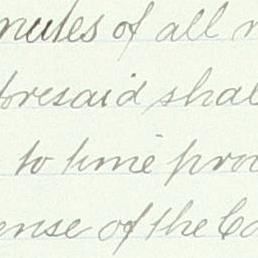 nutes of all
oresaid shal
to time prov
ense of the Co